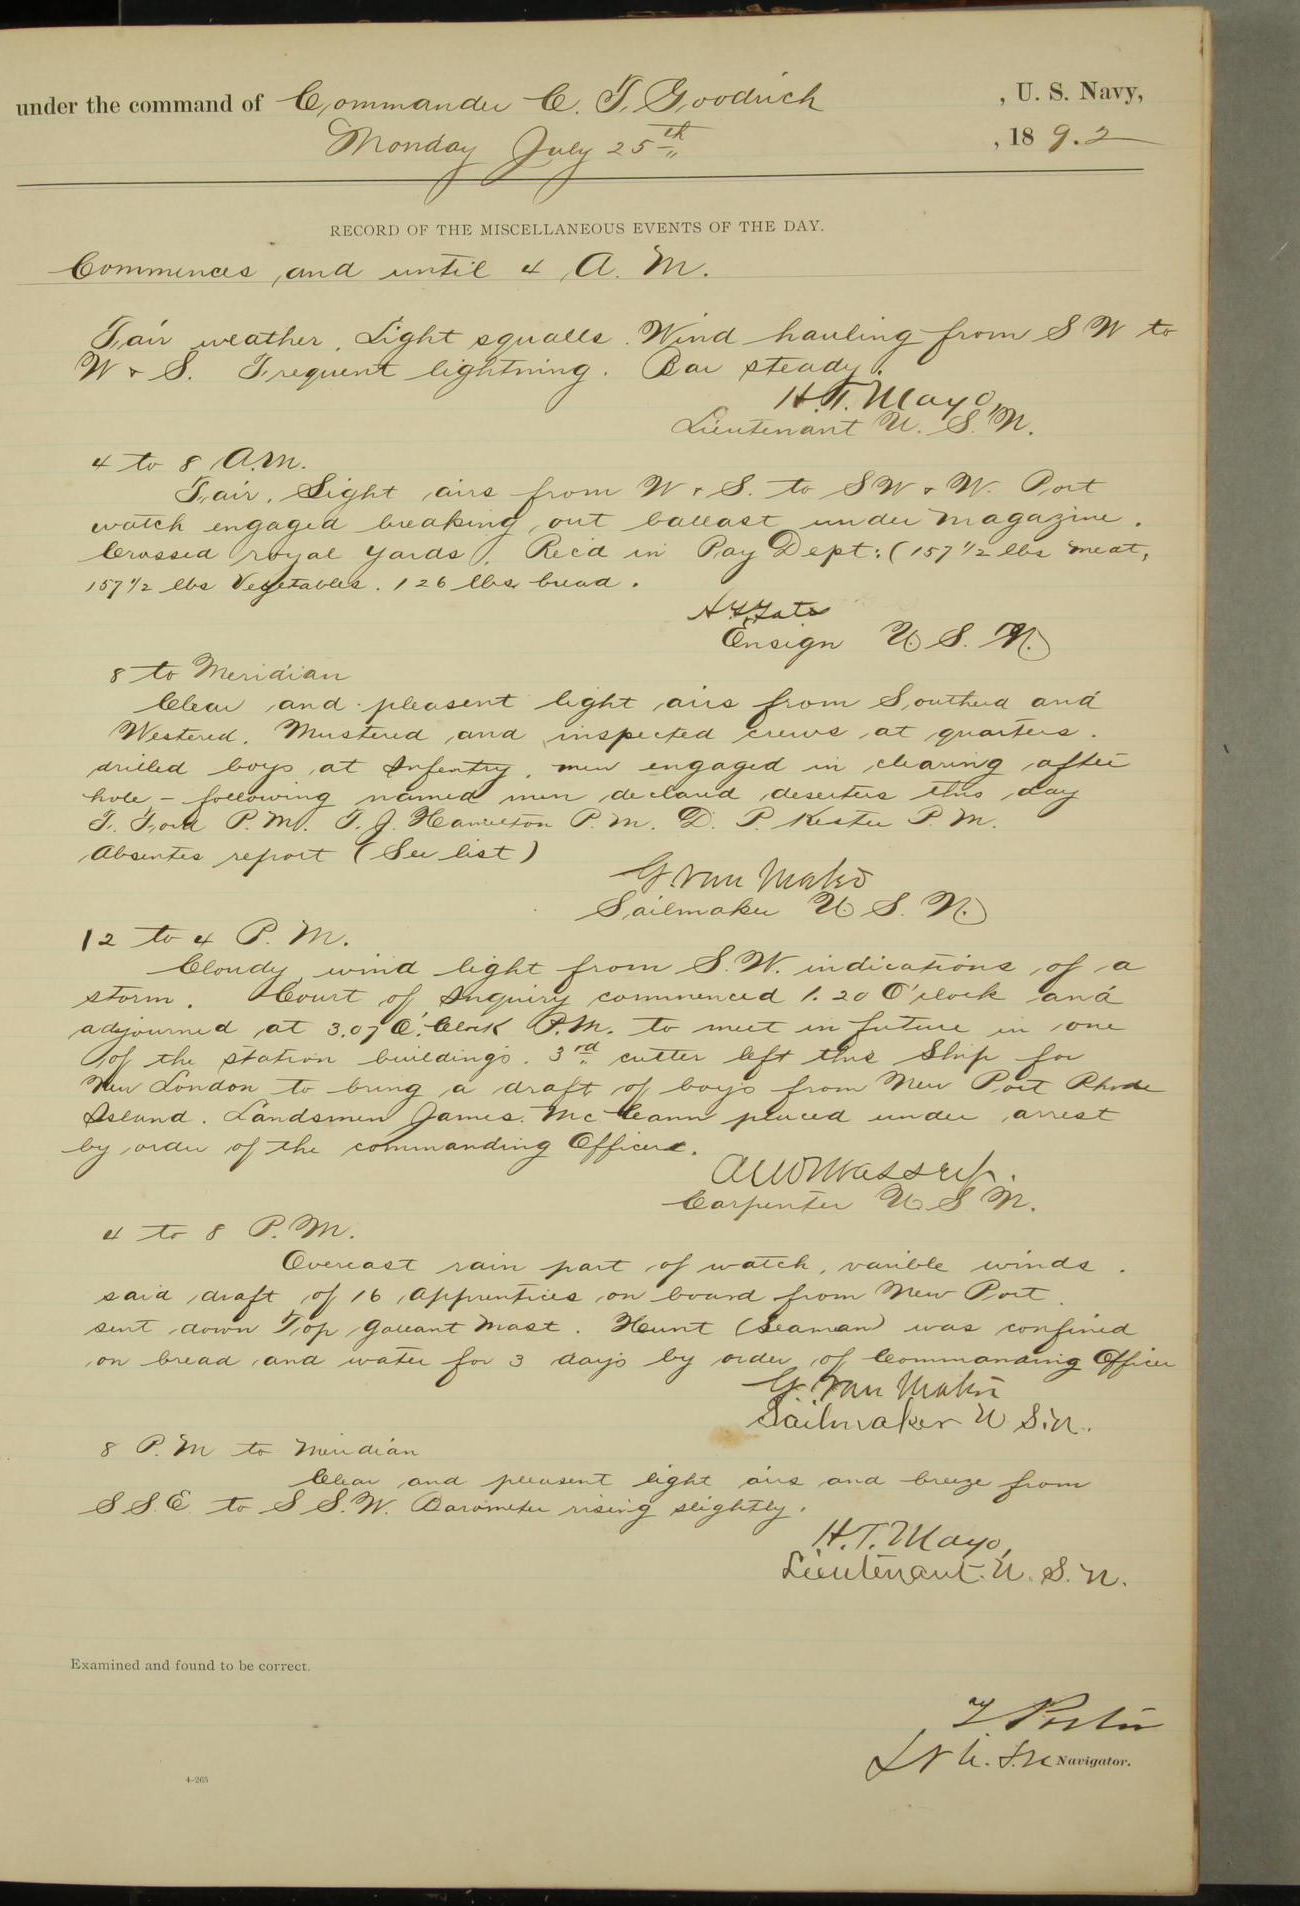 under the command of Commander C. F. Goodrich , U. S. Navy,
Monday July 25th , 189.2
RECORD OF THE MISCELLANEOUS EVENTS OF THE DAY.
Commences and until 4 A. M.
Fair weather. Light squalls. Wind hauling from S W to
W x S. Frequent lightning. Bar steady.
H. T. Mayo,
Lieutenant U. S. N.
4 to 8 A.M.
Fair. Light airs from W x S. to S W x W. Port
watch engaged breaking out ballast under magazine.
Crossed royal yards. Rec'd in Pay Dept: (157 1/2 lbs meat,
157 1/2 lbs Vegetables. 126 lbs bread.
Ensign U. S. N.
8 to Meridian
Clear and pleasent light airs from Southerd and
Westered. Mustered and inspected crews at quarters.
drilled boys at Infentry. men engaged in clearing after
hole - following named men declared deserters this day
T. Ford P. M. T. J. Hamelton P. M. D. P. Kester P. M.
Absentes report (See list)
G Van Mater
Sailmaker U. S. N.
12 to 4 P. M.
Cloudy wind light from S. W. indications of a
storm. Court of Inquiry commenced 1.20 O'clock and
adjourned at 3.07 O'Clock P.M. to meet in future in one
of the station buildings. 3rd cutter left this Ship for
New London to bring a draft of boys from New Port Rhode
Island. Landsmen James. Mc Cann placed under arrest
by order of the commanding Officer.
Carpenter U S N.
4 to 8 P. M.
Overcast rain part of watch, varible winds.
said draft of 16 Apprentices on board from New Port.
sent down Top gallant Mast. Hunt (Seaman) was confined
on bread and water for 3 days by order of Commanding Officer
G. Van Mater
Sailmaker U S. N.
8 P. M to Meridian
Clear and pleasent light airs and breeze from
S S. E to S S. W. Barometer rising slightly.
H. T. Mayo,
Lieutenant. U. S. N.
Examined and found to be correct.
Navigator.
4-265